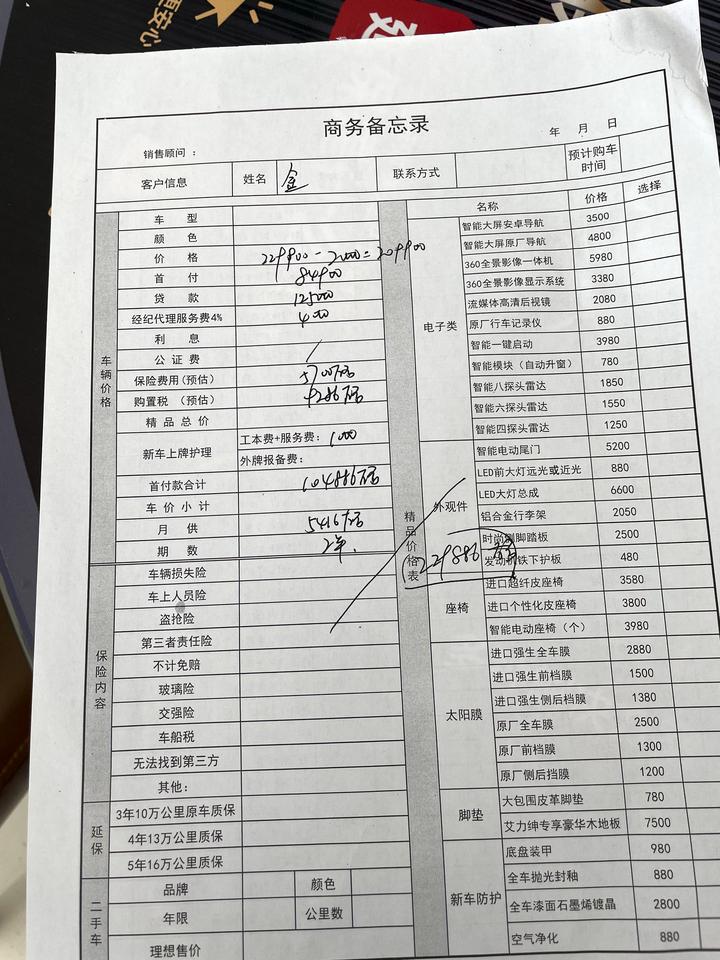 商务备忘录
年 月 日
销售顾问 :
客户信息 姓名 金 联系方式 预计购车时间
车辆价格
车 型
颜 色
价 格
首 付 84900
贷 款 125000
经纪代理服务费4%
利 息
公 证 费
保险费用(预估)
购置税 (预估)
精 品 总 价
新车上牌护理 工本费+服务费: 1000
外牌报备费:
首付款合计 104886
车 价 小 计
月 供 5416
期 数 2年.
保险内容
车辆损失险
车上人员险
盗抢险
第三者责任险
不计免赔
玻璃险
交强险
车船税
无法找到第三方
其他:
延保
3年10万公里原车质保
4年13万公里质保
5年16万公里质保
二手车
品牌 颜色
年限 公里数
理想售价
精品价格表
名称 价格 选择
电子类
智能大屏安卓导航 3500
智能大屏原厂导航 4800
360全景影像一体机 5980
360全景影像显示系统 3380
流媒体高清后视镜 2080
原厂行车记录仪 880
智能一键启动 3980
智能模块（自动升窗） 780
智能八探头雷达 1850
智能六探头雷达 1550
智能四探头雷达 1250
外观件
智能电动尾门 5200
LED前大灯远光或近光 880
LED大灯总成 6600
铝合金行李架 2050
时尚侧脚踏板 2500
发动机铁下护板 480
229886
座椅
进口超纤皮座椅 3580
进口个性化皮座椅 3800
智能电动座椅（个） 3980
太阳膜
进口强生全车膜 2880
进口强生前档膜 1500
进口强生侧后档膜 1380
原厂全车膜 2500
原厂前档膜 1300
原厂侧后挡膜 1200
脚垫
大包围皮革脚垫 780
艾力绅专享豪华木地板 7500
新车防护
底盘装甲 980
全车抛光封釉 880
全车漆面石墨烯镀晶 2800
空气净化 880